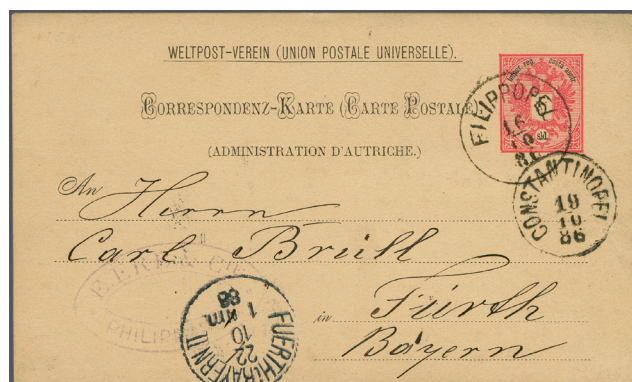 WELTPOST-VEREIN (UNION POSTALE UNIVERSELLE).
CORRESPONDENZ-KARTE (CARTE POSTALE)
(ADMINISTRATION D'AUTRICHE.)
FILIPPOPEL
16
10
CONSTANTINOPEL
19
10
86
An Herrn
Carl Brüll
in Fürth
Bayern
PHILIPP
FUERTH(BAYERN II)
22
10
1
Nm.